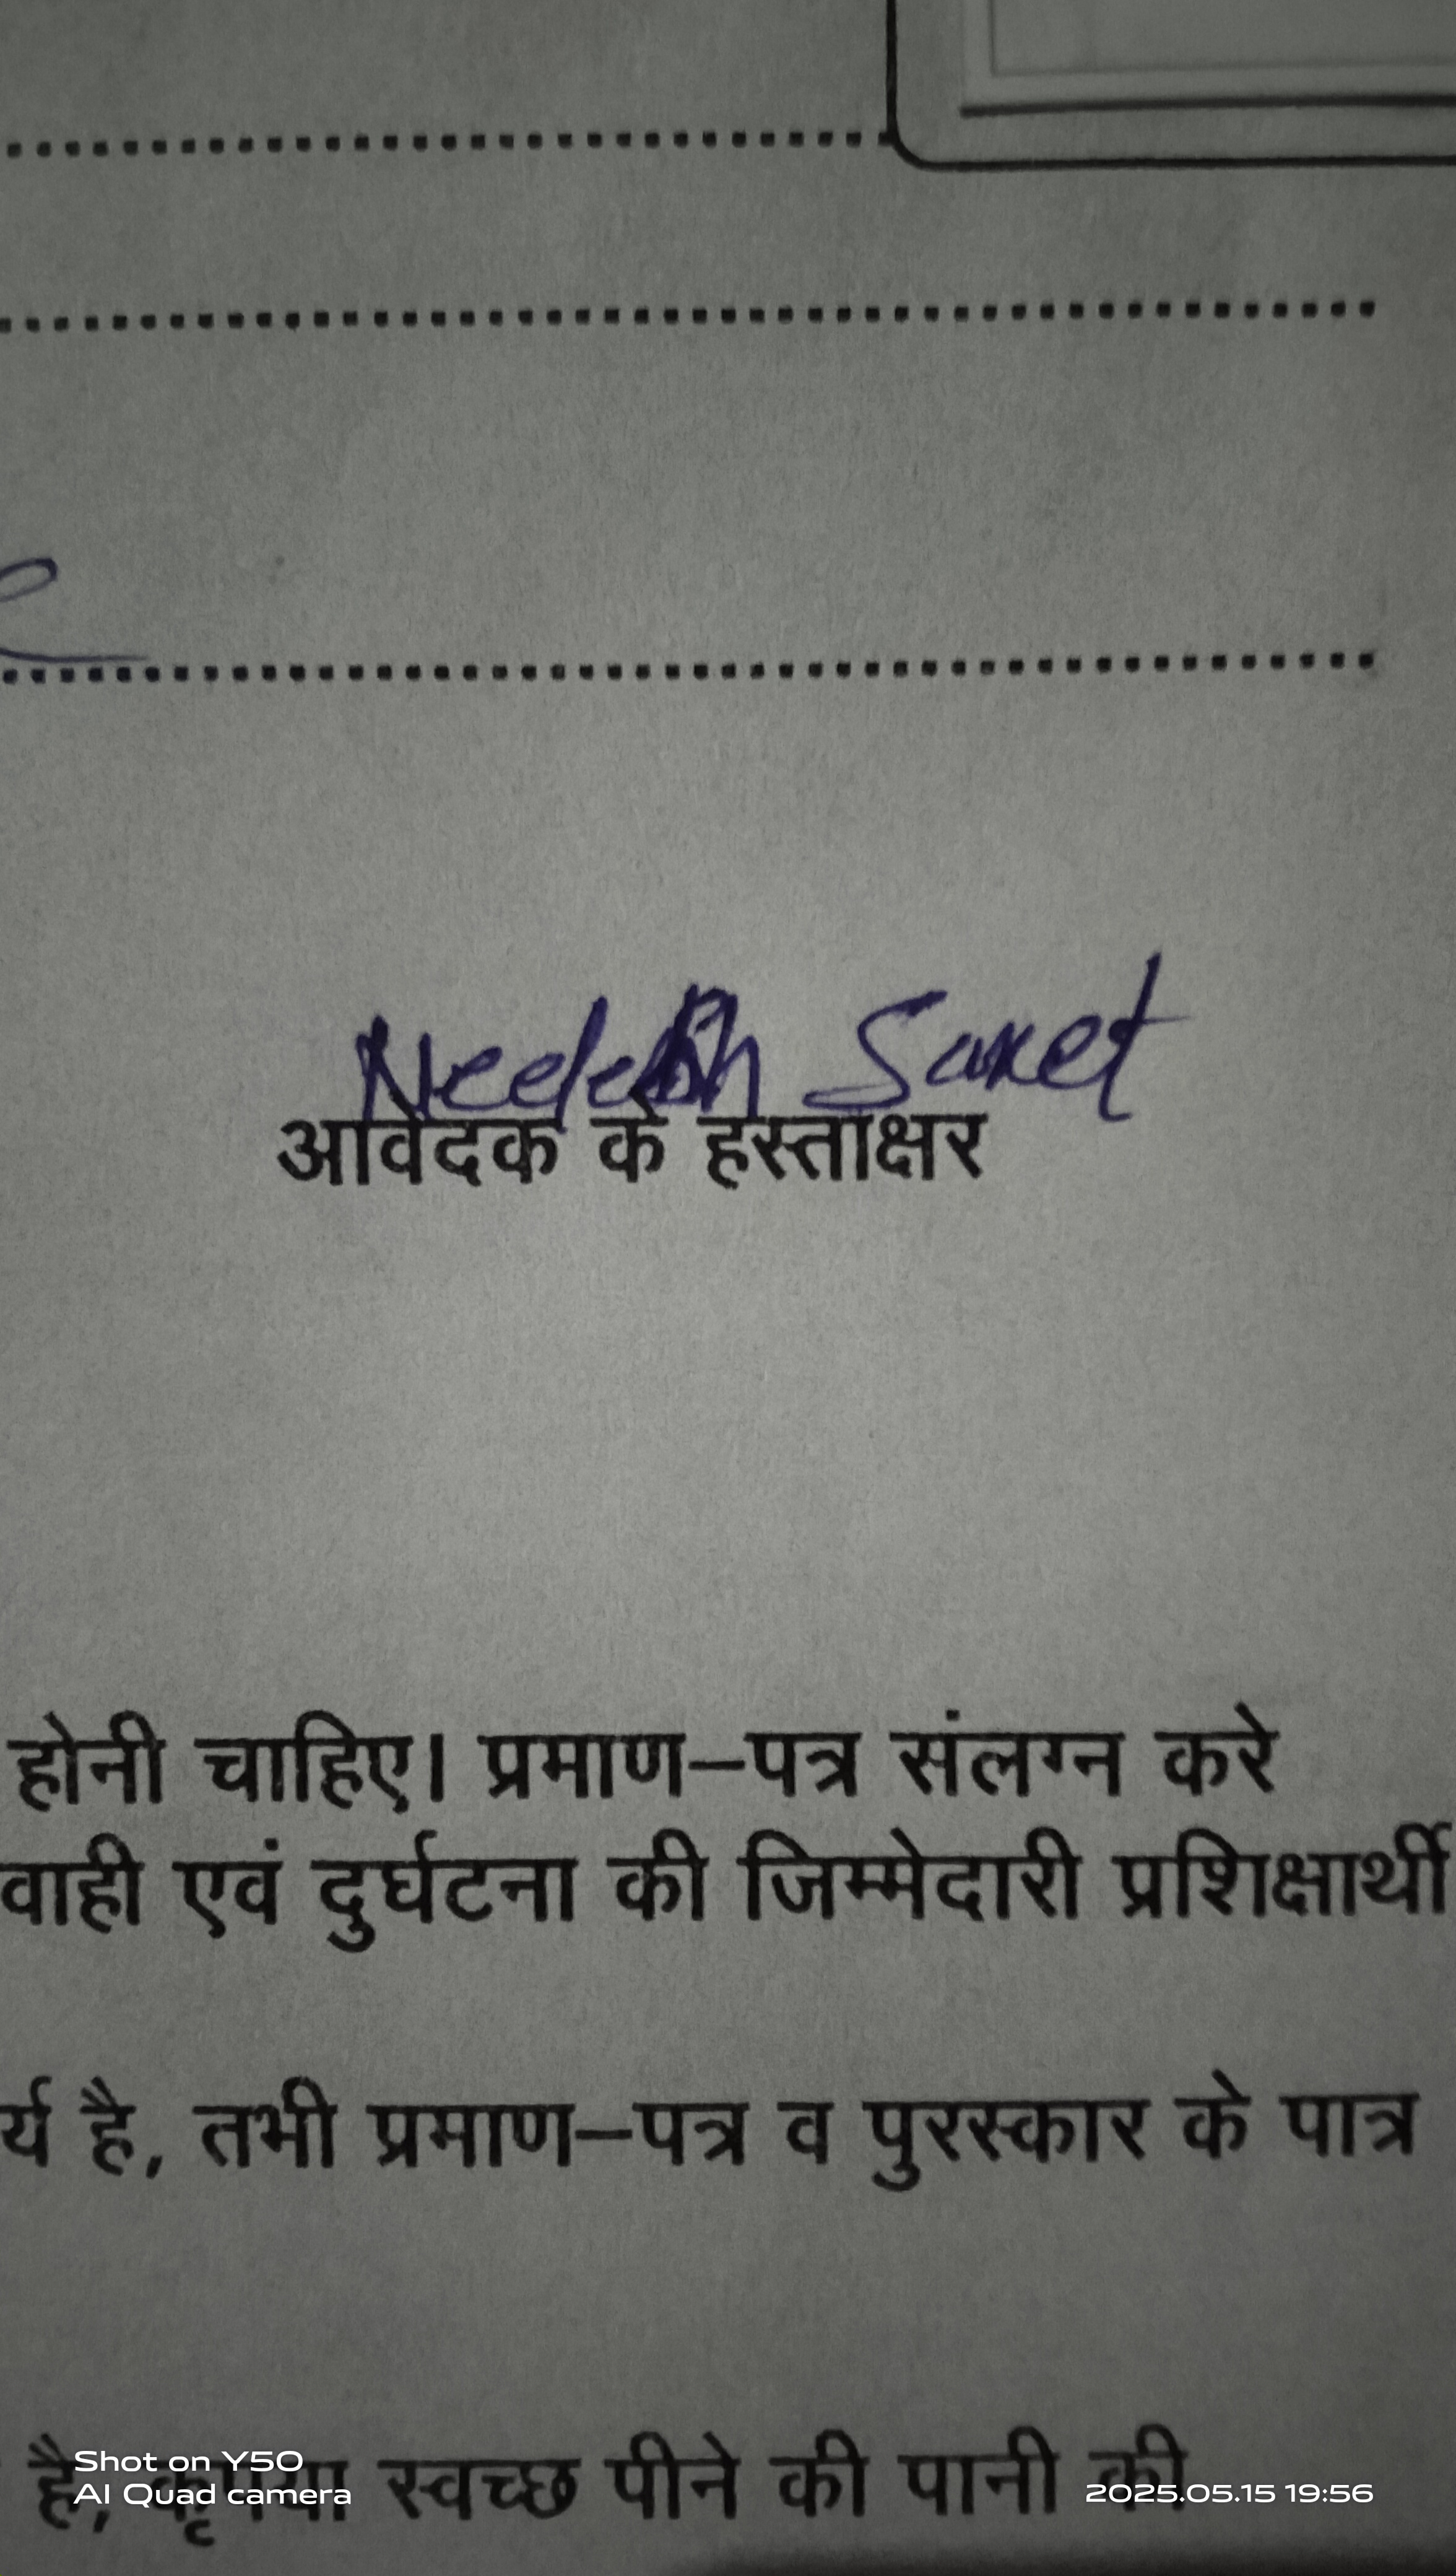 Neelesh Saket
आवेदक के हस्ताक्षर
होनी चाहिए। प्रमाण–पत्र संलग्न करे
वाही एवं दुर्घटना की जिम्मेदारी प्रशिक्षार्थी
र्य है, तभी प्रमाण–पत्र व पुरस्कार के पात्र
है, कृपया स्वच्छ पीने की पानी की
Shot on Y50
AI Quad camera
2025.05.15 19:56